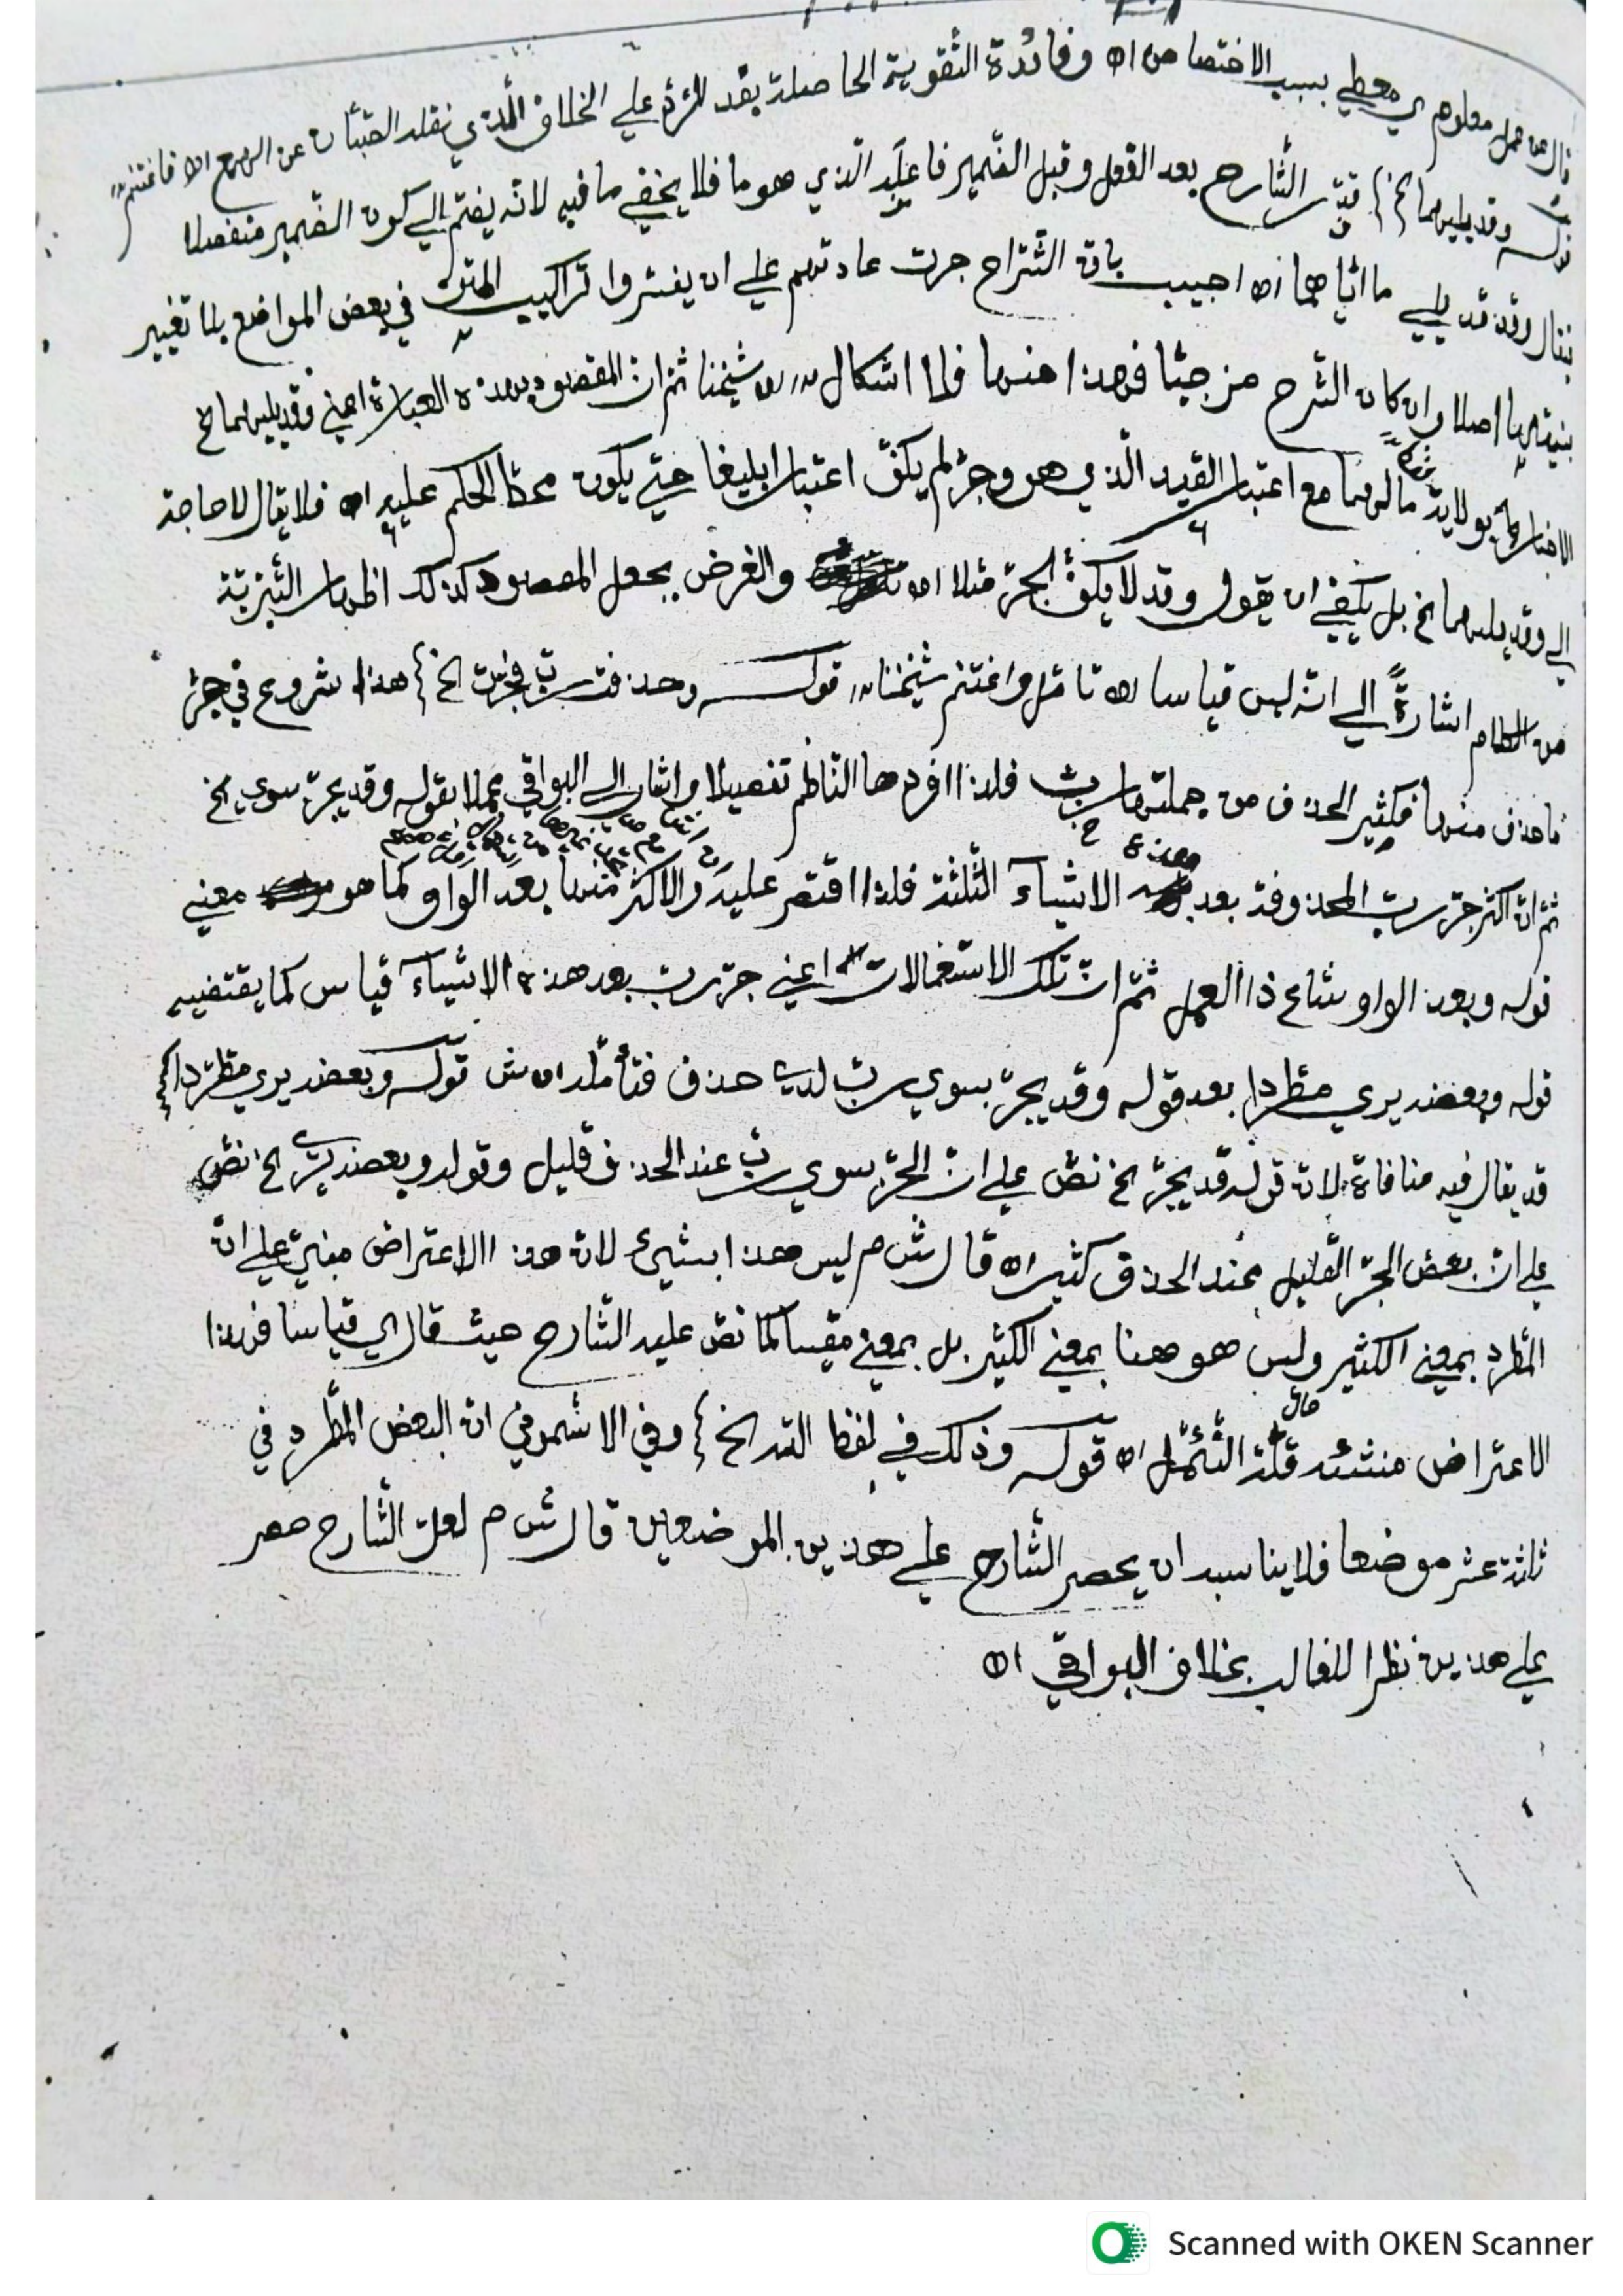 معلوم اي معطي بسبب الاختصاص اه وفائدة التقوية الحاصلة بقد للرد علي الخلاف الذي نقله الصبان عن الهمع اه فاغتنم
قوله وقد يليهما الخ} قدّر الشارح بعد الفعل وقبل الضمير فاعلَه الذي هو ما فلا يخفي ما فيه لانه يفتح الي كون الضمير منفصلا
فقال وقد قد يلي ما اياهما اه اجيب بان الشراح جرت عادتهم علي ان يفسروا تراكيب المتن في بعض المواضع بلا تغيير
اصلا وان كان الشرح مزجيّا فهذا منها فلا اشكال اه شيخنا ثم ان المقصود بهذه العبارة اعني وقد يليهما الخ
الاخبار بولاية ما لهما مع اعتبار القيد الذي هو وجر لم يكف اعتبارا بليغا حتي يكون محط الحكم عليه اه فلا يقال لا حاجة
الي وقد يليهما الخ بل يكفي ان يقول وقد لا يكف الجر مثلا اه والغرض بجعل المقصود كذلك اظهار
من الكلام اشارةً الي انه ليس قياسا اه تامل واغتنم شيخنا قوله وحذفت رب فجرت الخ} هذا شروع في جر
ما حذف منها فكثير الحذف من جملتها رب فلذا افردها الناظم تفصيلا واشار الي البواقي مجملا بقوله وقد يجر سوي الخ
ثم ان اكثر جر رب المحذوفة بعد هذه الاشياء الثلثة فلذا اقتصر عليه والاكثر منها بعد الواو كما هو معني
قوله وبعد الواو شاع ذا العمل ثم ان تلك الاستعمالات اعني جر رب بعد هذه الاشياء قياس كما يقتضيه
قوله وبعضه يري مطردا بعد قوله وقد يجر بسوي رب لدي حذف فتأمله اه ش قوله وبعضه يري مطردا الخ
قد يقال فيه منافاة لان قوله قد يجر الخ نص علي ان الجر بسوي رب عند الحذف قليل وقوله وبعضه يري الخ نص
علي ان بعض الجر القليل عند الحذف كثير اه قال ش م ليس هذا بشيء لان هذا الاعتراض مبني علي ان
المطرد بمعني الكثير وليس هو هنا بمعني الكثير بل بمعني مقيسا كما نص عليه الشارح حيث قال اي قياسا فهذا
الاعتراض منشئه قلة التأمل اه قوله وذلك في لفظ الله الخ} وفي الاشموني ان البعض المطرد في
ثلثة عشر موضعا فلا يناسبه ان يحصر الشارح علي هذين الموضعين قال ش م لعل الشارح حصر
علي هذين نظرا للغالب بخلاف البواقي اه
Scanned with OKEN Scanner